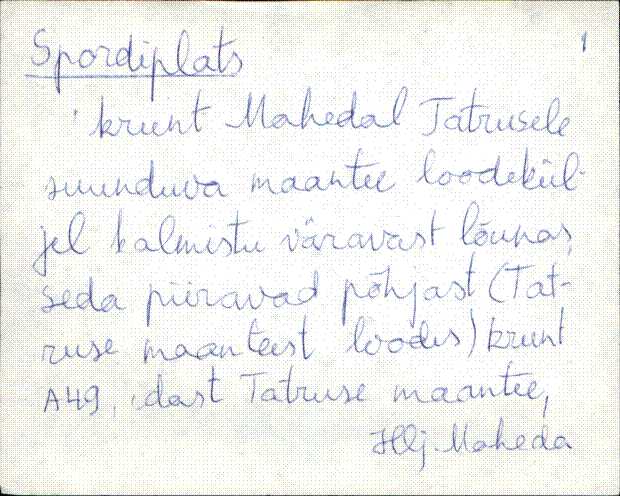 Spordiplats 1
krunt Mahedal Tatrusele
suunduva maantee loodekül-
jel kalmistu väravast lõunas,
seda piiravad põhjast (Tat-
ruse maanteest loodes) krunt
A49, idast Tatruse maantee,
Hlj. Maheda